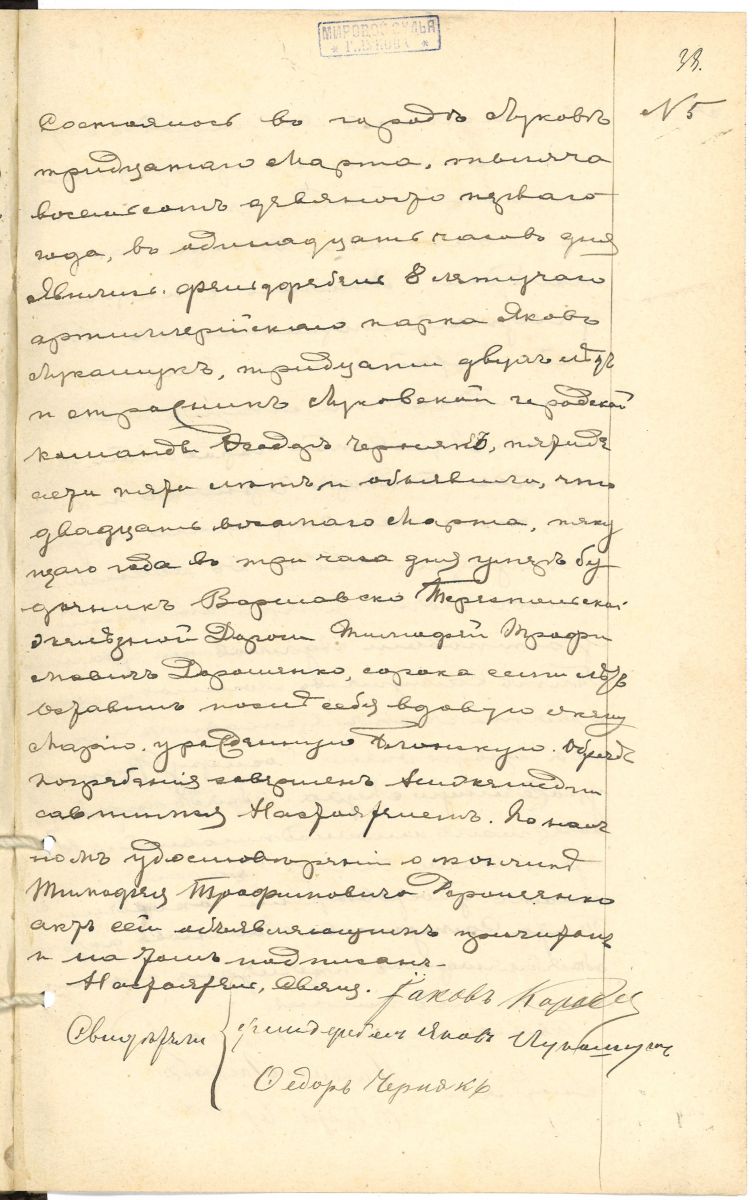 МИРОВОЙ СУДЬЯ
* Г. ЛУКОВА *
38.
№ 5
Состоялось въ городѣ Луковѣ
тридцатаго Марта, тысяча
восемьсотъ девяносто перваго
года, въ одинадцать часовъ дня
Явились. Фельдфебель 8 летучаго
артиллерійскаго парка Яковъ
Лукашукъ, тридцати двухъ лѣтъ
и стражникъ Луковской городской
команды Ѳеодоръ Чернякъ, пятиде
сяти пяти лѣтъ и объявили, что
двадцать восьмаго Марта, теку
щаго года въ три часа дня умеръ бу
дочникъ Варшавско Тереспольской
Желѣзной Дороги Тимофей Трофи
мовичъ Дорошенко, сорока семи лѣтъ
Оставивъ послѣ себя вдовую жену
Марію, урожденную. Обрядъ
погребенія совершенъ
Настоятелемъ. По наоч
номъ удостовѣреніи о кончинѣ
Тимофея Трофимовича Дорошенко
актъ сей объявляющимъ прочитанъ
и на томъ подписанъ.
Настоятель, Свящ. Іаковъ
Свидѣтели
Фельдфебель Яковъ Лукашукъ
Ѳедоръ Чернякъ